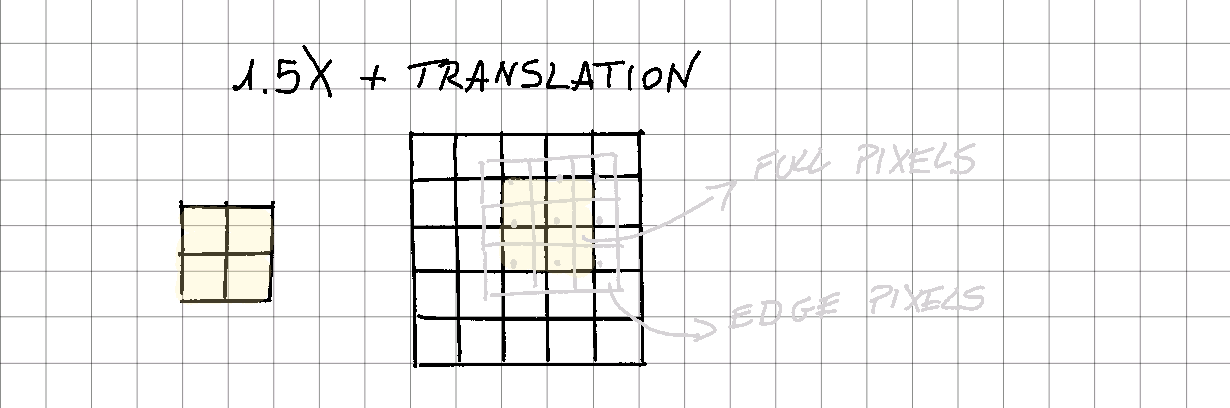 1.5X + TRANSLATION
FULL PIXELS
EDGE PIXELS